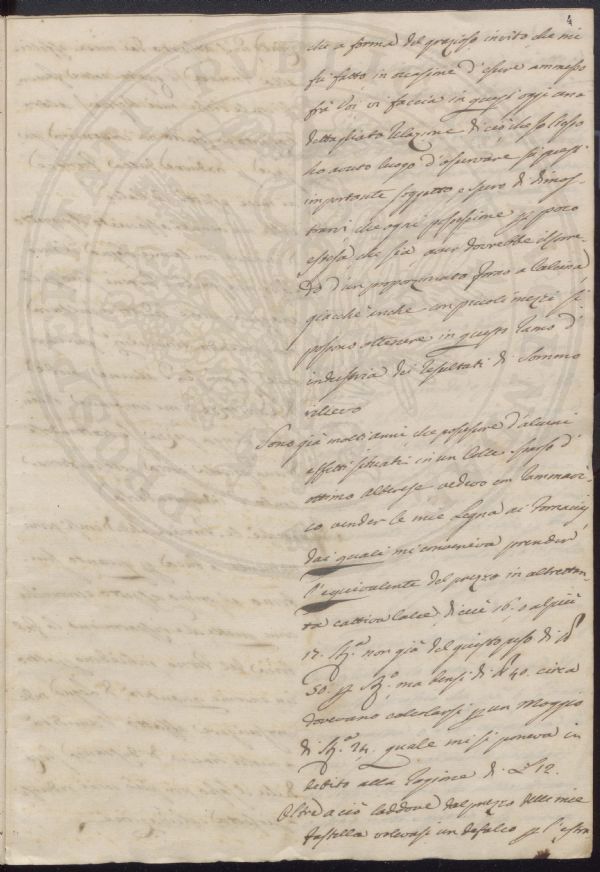 4
che a forma del grazioso invito che mi
fu fatto in occasione d'essere ammesso
frà Voi vi faccia in quest'oggi una
dettagliata Relazione di ciò che io stesso
ho avuto luogo d'osservare su quest'
importante soggetto, e spero di dimos-
trarvi che ogni possessione per poco
estesa che sia aver dovrebbe il corre-
do d'un proporzionato forno a Calcina
giacchè anche con piccoli mezzi si
possono ottenere in questo ramo d'
industria dei resultati di sommo
rilievo
Sono già molti anni che possessore d'alcuni
effetti situati in un Colle sparso d'
ottimo alberese vedevo con rammari-
co vender le mie Legna ai Fornaciaj
dai quali mi conveniva prender
l'equivalente del prezzo in altrettan-
ta cattiva Calce, di cui 16. o al più
17. non già del giusto peso di
50. ma bensì di 40. circa
dovevano calcolarsi p un moggio
di 24. quale mi si poneva in
debito alla ragione di 12.
Oltre a ciò laddove dal prezzo delle mie
fastella volevasi un defalco p l'estra